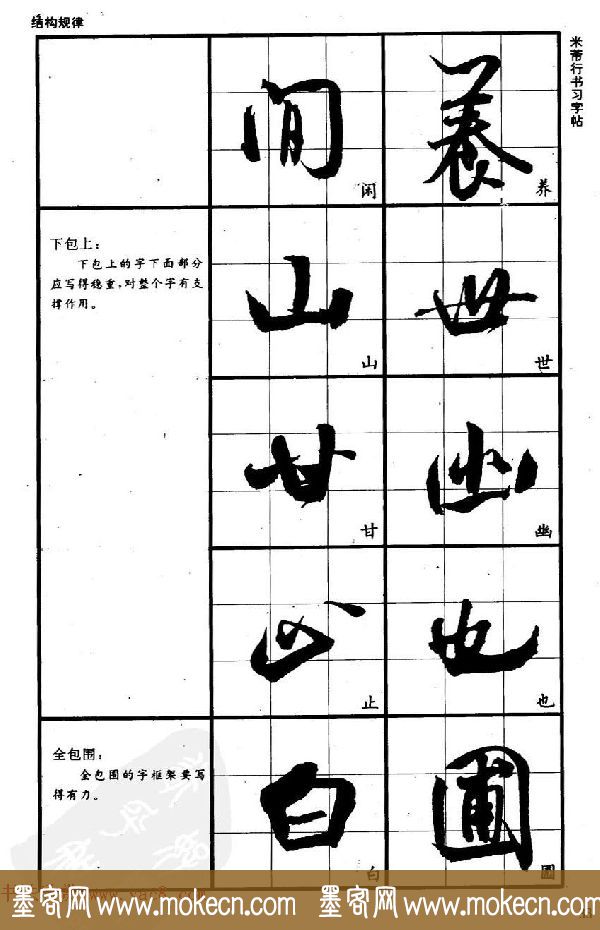 结构规律
米芾行书习字帖
閒 养
闲 养
下包上：
下包上的字下面部分
应写得稳重，对整个字有支
撑作用。
山 世
山 世
甘 幽
甘 幽
止 也
止 也
全包围：
全包围的字框架要写
得有力。
白 圃
白 圃
墨客网 www.mokecn.com 墨客网 www.mokecn.com